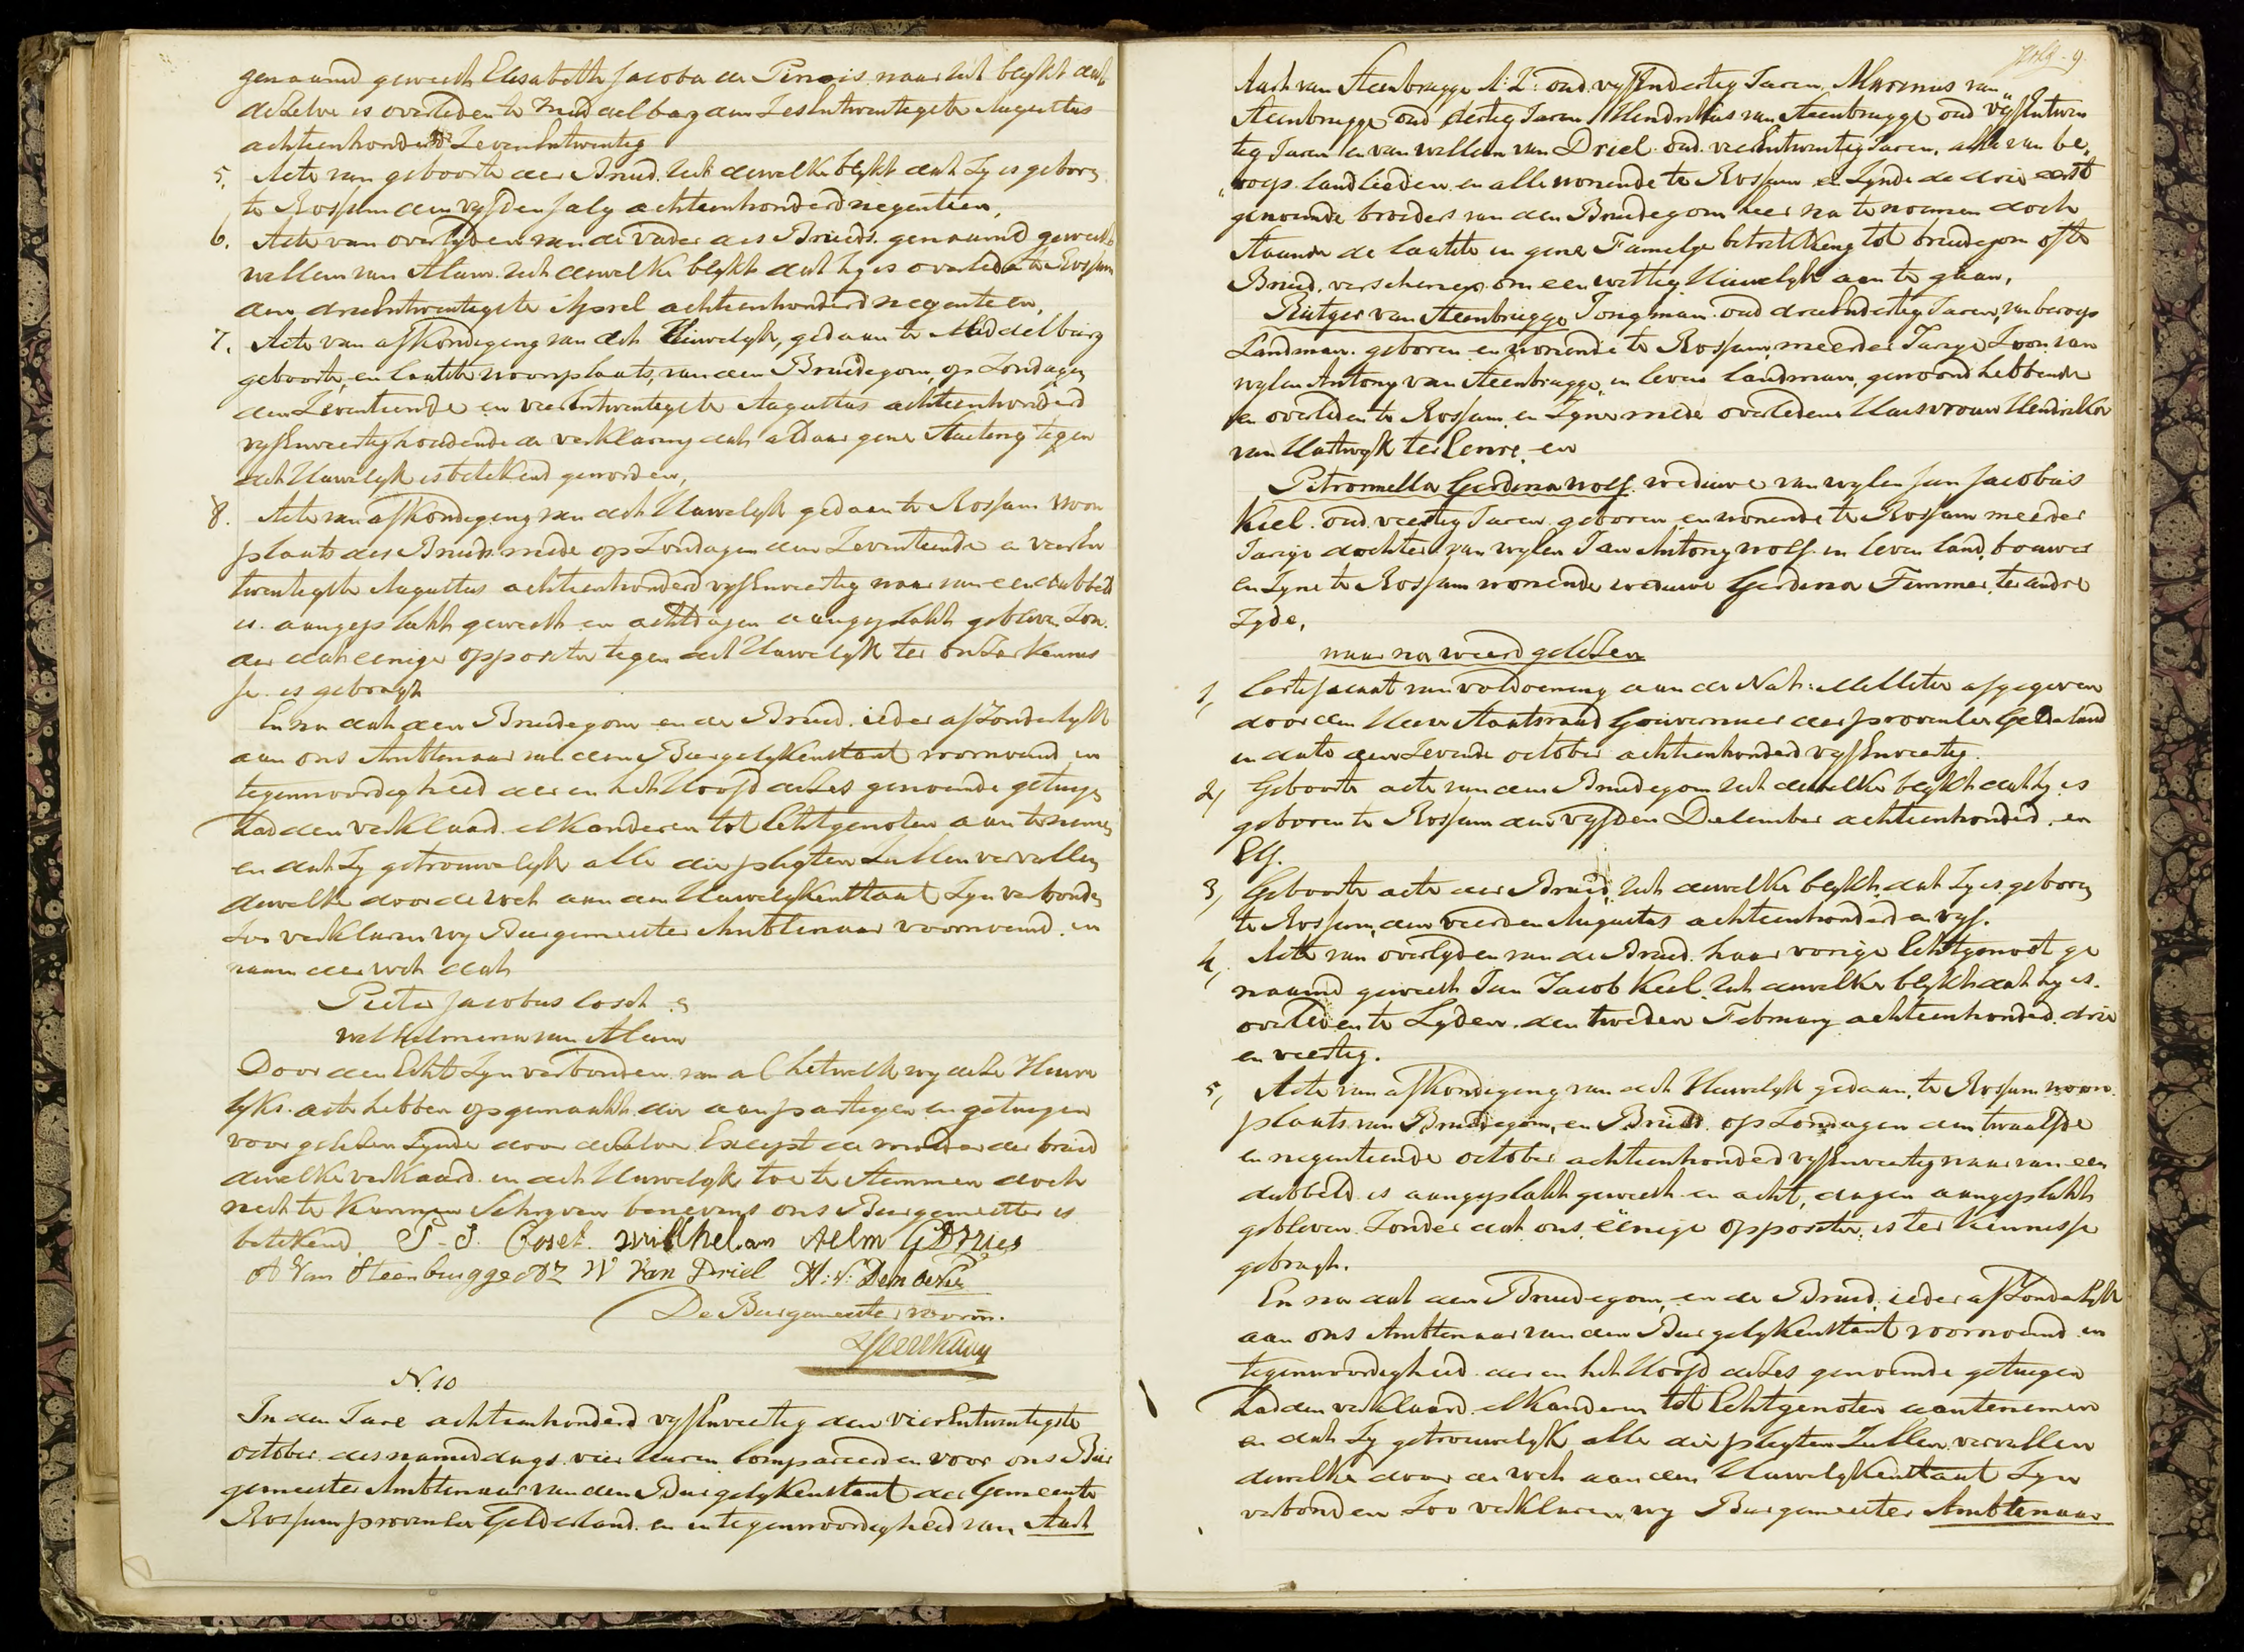 genaamd geweest Elisabeth Jacoba de Pinois waar uit blykt dat
deselve is overleden te Middelburg den Zesentwentigste Augustus
achtienhonderd Zevenentwentig
5. Acte van geboorte der Bruid. uit dewelke blykt dat Zy is geboren
te Rossum den vyfden July achtienhonderd negentien,
6. Acte van overlyden van de vader des Bruids. genaamd geweest
willem van Alem. uit dewelke blykt dat hy is overleden te Rossum
den drieentwentigste April achtienhonderd negentien,
7. Acte van afkondeging van dit Huwelyk, gedaan te Middelburg
geboorte, en laatste woonplaats, van den Bruidegom, op Zondagen
den Zeventiende en vierentwentigste Augustus achtienhonderd
vyfenveertig houdende de verklaring dat aldaar gene Stuiting tegen
dit Huwelyk is betekend geworden,
8. Acte van afkondeging van dit Huwelyk gedaan te Rossum woon
plaats des Bruids mede op Zondagen den Zeventiende en vieren
twentigste Augustus achtienhonderd vyfenveertig waar van een dubbeld
is aangeplakt geweest en acht dagen aangeplakt gebleven Zon.
der dat enige oppositie tegen dit Huwelyk ter onzer kennis
se. is gebragt
En na dat den Bruidegom en de Bruid. ieder afzonderlyk
aan ons Ambtenaar van den Burgelykenstant voornoemd in
tegenwoordigheid der in het Hoofd dezes genoemde getuigen
hadden verklaard. elkanderen tot Echtgenoten aan te nemen
en dat Zy getrouwelyk alle die pligten Zullen vervullen
dewelke door de wet aan den Huwelykenstaat Zyn verbonden
Zoo verklaren wy Burgemeester Ambtenaar voornoemd. in
naam der wet dat
Pieter Jacobus Coset. &
Wilhelmina van Alem
Door den Echt Zyn verbonden. van al hetwelk wy deze Huwe
lyks. acte hebben opgemaakt. die aan partyen en getuigen
voorgelezen Zynde door dezelve Exept de moeder der bruid
dewelke verklaard. in dit Huwelyk toe te Stemmen doch
niet te kunnen Schryven benevens ons Burgemeester is
betekend. P. J. Coset. Wilhel.am Alem G D Vries
A Van Steenbrugge AZ W Van Driel
De Burgemeester voorn.
N. 10
In den Jare achtienhonderd vyfenveertig den vierentwentigste
october des nameddags vier Uuren Compareerden voor ons Bur
gemeester Ambtenaar van den Burgelykenstant der Gemeente
Rossum provencie Gelderland. en in tegenwoordigheid van Aart
9
Aart van Steenbrugge A:Z: oud. vyfendertig Jaren Marinus van
Steenbrugge oud dertig Jaren Hendrikus van Steenbrugge oud vyfentwen
tig Jaren en van willem van Driel. oud. vierentwentig Jaren, alle van be,
roep. landlieden en alle wonende te Rossum en Zynde de drie eerst
genoemde broeders van den Bruidegom hier na te noemen doch
Staande de laatste in gene Familye betrekking tot bruidegom ofte
Bruid. verschenen om een wettig Huwelyk aan te gaan,
Rutger van Steenbrugge Jongman. oud drieendertig Jaren, van beroep
Landman. geboren en wonende te Rossum, meerder Jarige Zoon. van
wylen Antony van Steenbrugge, in leven landman, gewoond hebbende
en overleden te Rossum, en Zyne mede overledene Huisvrouw Hendrika
van Hartwyk ter Eenre, en
Petronnella Gerdina wolf. weduwe van wylen Jan Jacobus
Kiel. oud. veertig Jaren. geboren en wonende te Rossum meerder
Jarige dochter van wylen Jan Antony wolf. in leven land. bouwer
en Zyne te Rossum wonende weduwe Gerdina Timmer, ter andre
Zyde,
waar na werd gelezen
1, Certificaat van voldoening aan de Nat: Millitie afgegeven
door den Heer Staatsraad Gouverneur der provencie Gelderland
in dato den Zevende october achtienhonderd vyfenveertig
2, Geboorte acte van den Bruidegom uit dewelke blykt dat hy. is
geboren te Rossum den vyfden December achtienhonderd. en
Elf.
3, Geboorte acte der Bruid, uit dewelke blykt, dat Zy is geboren
te Rossum, den vierden Augustus achtienhonderd en vyf.
4, Acte van overlyden van de Bruid. haar vorige Echtgenoot ge
naamd geweest Jan Jacob Kiel. uit dewelke blykt dat hy is.
overleden te Leyden. den tweden February achtienhonderd. drie
en veertig.
5, Acte van afkondeging van dit Huwelyk gedaan, te Rossum woon.
plaats van Bruidegom, en Bruid. op Zondagen den twaalfde
en negentiende october achtienhonderd vyfenveertig waar van een
dubbeld. is aangeplakt geweest en acht, dagen aangeplakt
gebleven. Zonder dat. ons. eenige oppositie, is ter kennisse
gebragt.
En na dat den Bruidegom, en de Bruid, ieder afzonderlyk
aan ons Ambtenaar van den Burgelykenstant voornoemd in
tegenwoordigheid. der in het Hoofd dezes genoemde getuigen
hadden verklaard. elkanderen tot Echtgenoten aantenemen
en dat Zy getrouwelyk alle die pligten Zullen. vervullen
dewelke door de wet aan den Huwelykenstaat Zyn
verbonden Zoo verklaren wy Burgemeester Ambtenaar